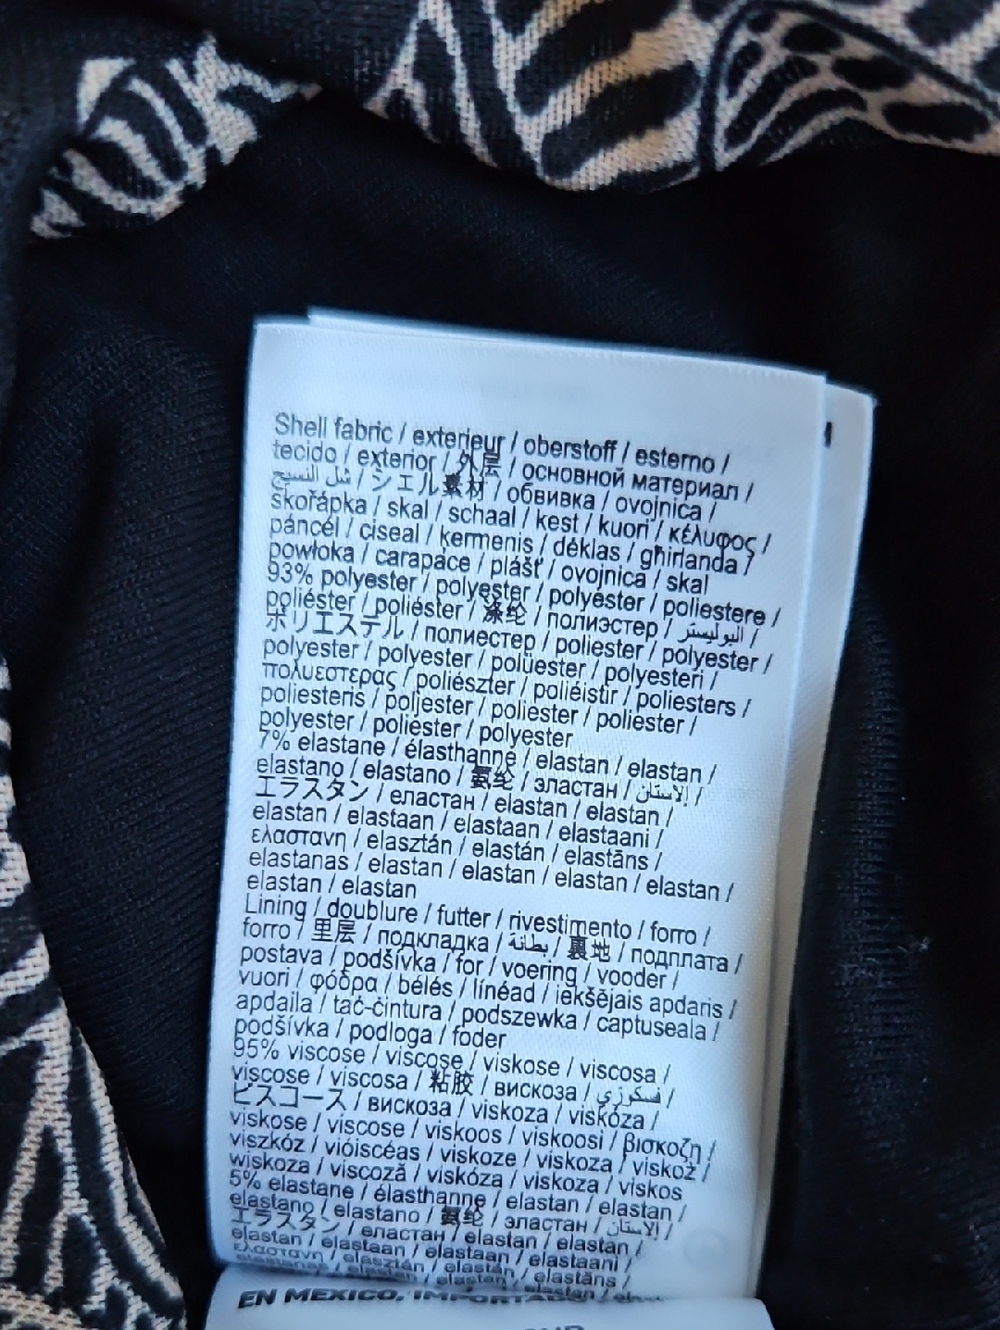 Shell fabric / exterieur / oberstoff / esterno /
tecido / exterior / 外层 / основной материал /
شل النسيج / シェル素材 / обвивка / ovojnica /
skořápka / skal / schaal / kest / kuori / κέλυφος /
páncél / ciseal / kermenis / déklas / għirlanda /
powłoka / carapace / plášť / ovojnica / skal
93% polyester / polyester / polyester / poliestere /
poliéster / poliéster / 涤纶 / полиэстер / البوليستر /
ポリエステル / полиестер / poliester / polyester /
polyester / polyester / polüester / polyesteri /
πολυεστερας / poliészter / poliéistir / poliesters /
poliesteris / poljester / poliester / poliester /
polyester / poliester / polyester
7% elastane / élasthanne / elastan / elastan /
elastano / elastano / 氨纶 / эластан / الاستان /
エラスタン / еластан / elastan / elastan /
elastan / elastaan / elastaan / elastaani /
ελαστανη / elasztán / elastán / elastāns /
elastanas / elastan / elastan / elastan / elastan /
elastan / elastan
Lining / doublure / futter / rivestimento / forro /
forro / 里层 / подкладка / بطانة / 裏地 / подплата /
postava / podšívka / for / voering / vooder /
vuori / φόδρα / bélés / línéad / iekšējais apdaris /
apdaila / taċ-ċintura / podszewka / captuseala /
podšívka / podloga / foder
95% viscose / viscose / viskose / viscosa /
viscose / viscosa / 粘胶 / вискоза / فسكوزي /
ビスコース / вискоза / viskoza / viskóza /
viskose / viscose / viskoos / viskoosi / βισκοζη /
viszkóz / vióiscéas / viskoze / viskoza / viskož /
wiskoza / viscoză / viskóza / viskoza / viskos
5% elastane / élasthanne / elastan / elastan /
elastano / elastano / 氨纶 / эластан / الاستان /
エラスタン / еластан / elastan / elastan /
elastan / elastaan / elastaan / elastaani /
ελαστανη / elasztán / elastán / elastāns /
elastanas / elastan / elastan / elastan
EN MEXICO, IMPORTADO